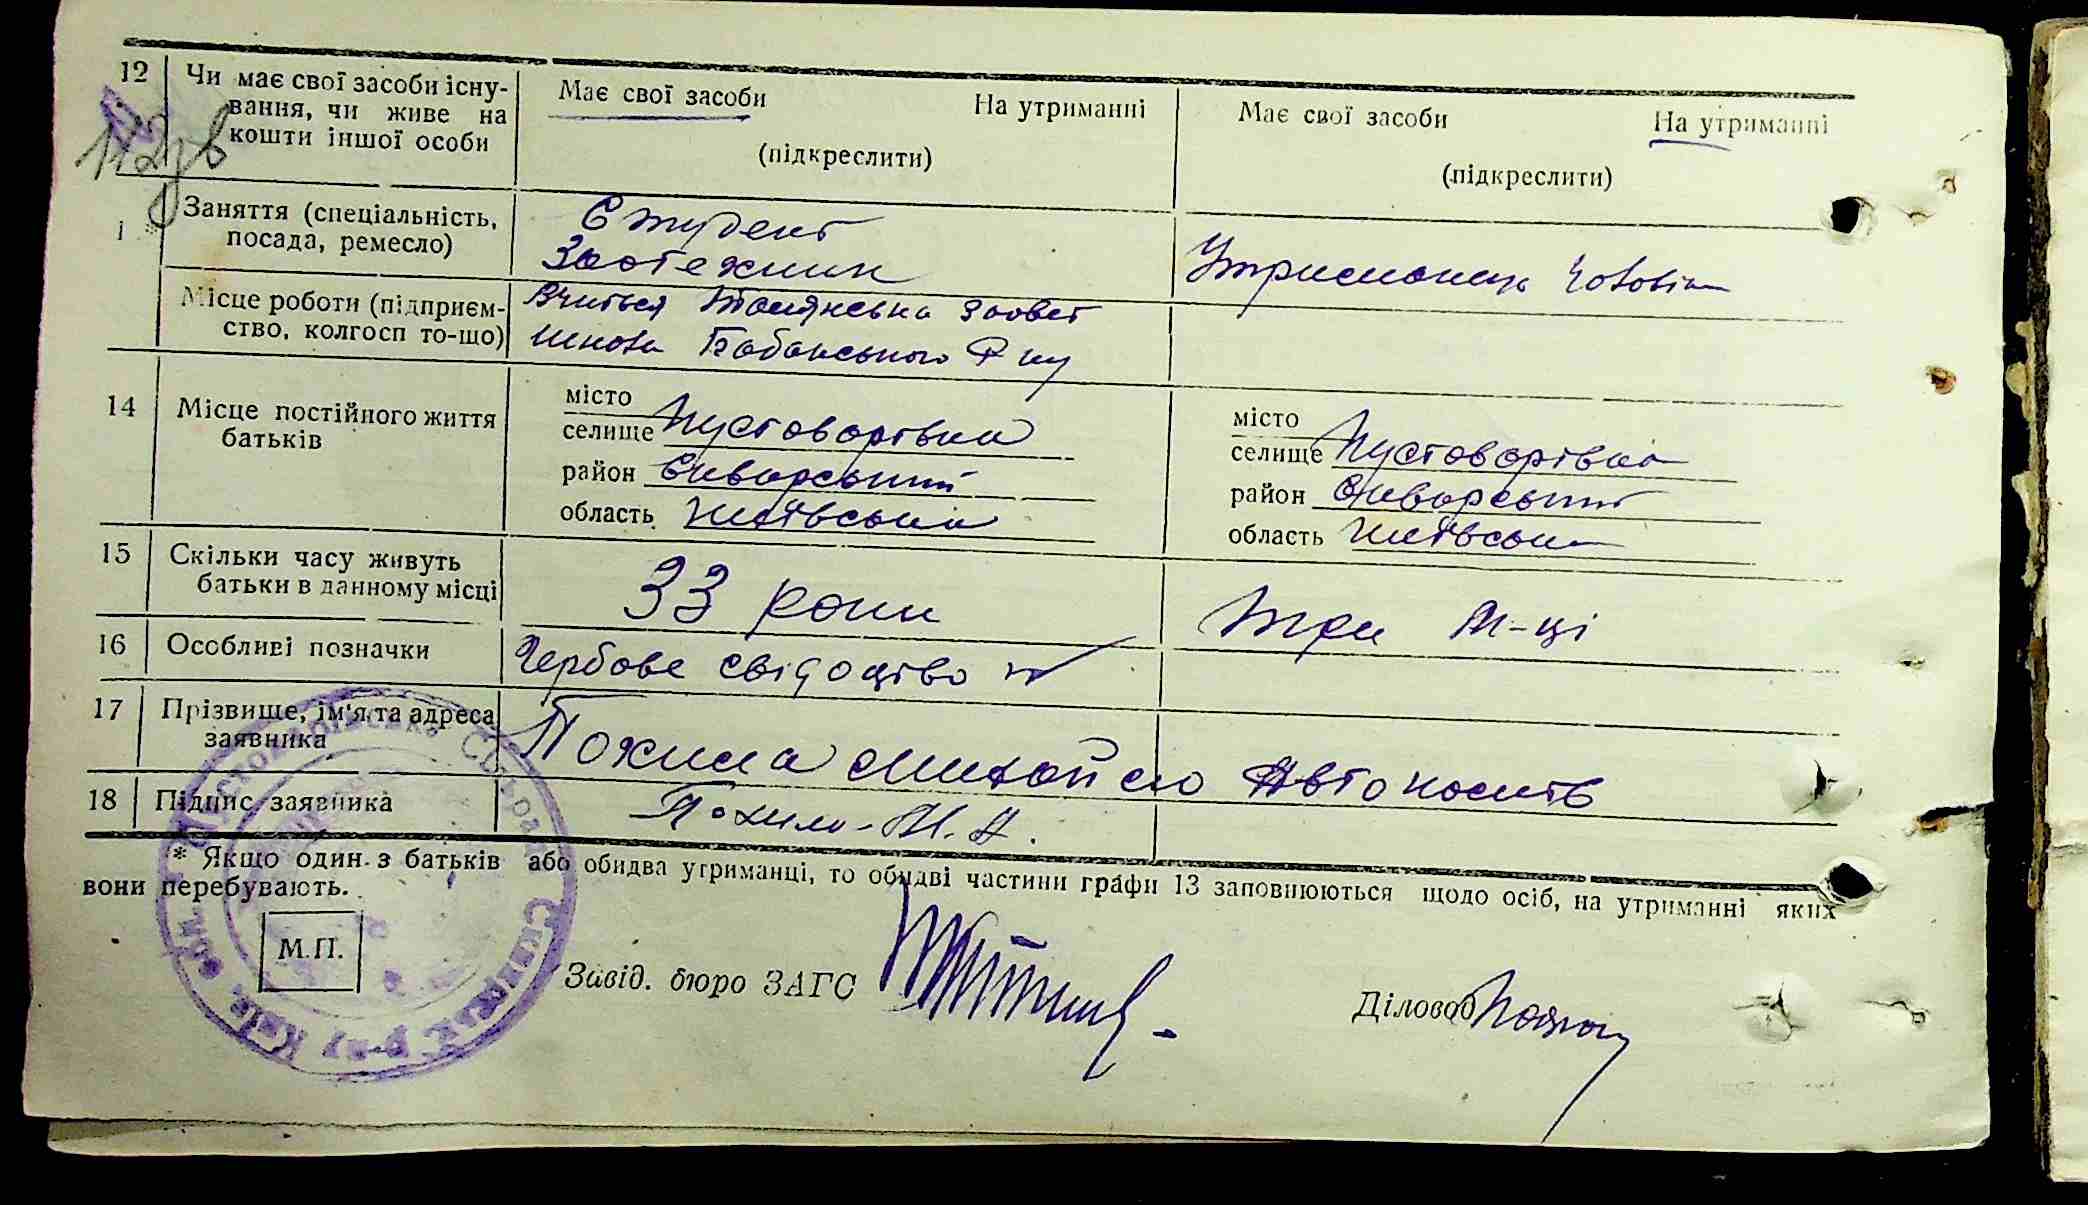 12 Чи має свої засоби існу-
вання, чи живе на
кошти іншої особи
Має свої засоби На утриманні
(підкреслити)
Має свої засоби На утриманні
(підкреслити)
Заняття (спеціальність,
посада, ремесло)
Студент
Зоотехник
Утриманець чоловіка
Місце роботи (підприєм-
ство, колгосп то-що)
Вчиться зоовет
школа Бабанського р-ну
14 Місце постійного життя
батьків
місто
селище Пустоварівка
район Сквирський
область Київська
місто
селище Пустоварівка
район Сквирський
область Київська
15 Скільки часу живуть
батьки в данному місці
33 роки
три м-ці
16 Особливі позначки
Гербове свідоцтво
17 Прізвище, ім'я та адреса
заявника
Похила Михайло
18 Підпис заявника
Похило М. А.
* Якщо один з батьків або обидва утриманці, то обидві частини графи 13 заповнюються щодо осіб, на утриманні яких
вони перебувають.
М.П.
Завід. бюро ЗАГС
Діловод